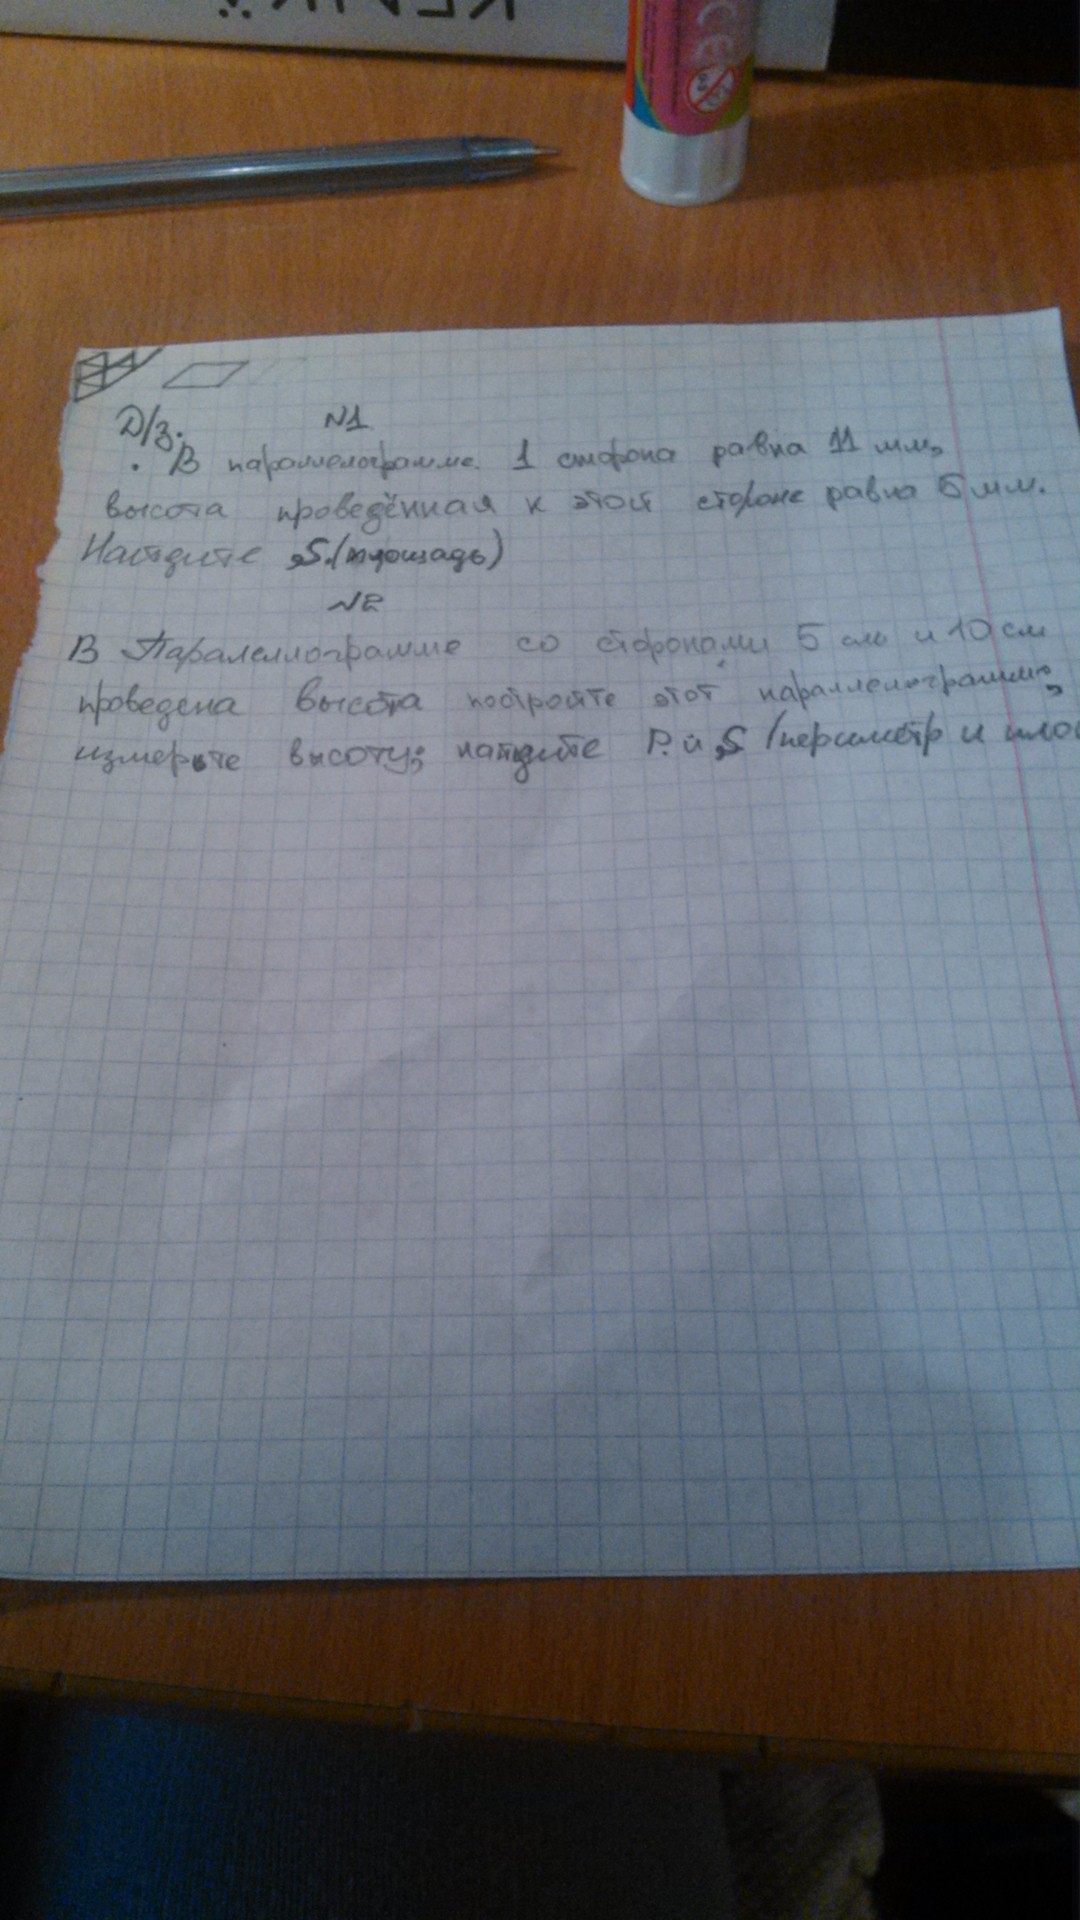 КЕРІК
СЕ
Д/З.
N1
В параллелограмме 1 сторона равна 11 мм,
высота проведённая к этой стороне равна 5 мм.
Найдите S.(площадь)
N2
В Паралеллограмме со сторонами 5 см и 10 см
проведена высота постройте этот параллелограмм,
измерьте высоту; найдите P. и S (периметр и пло